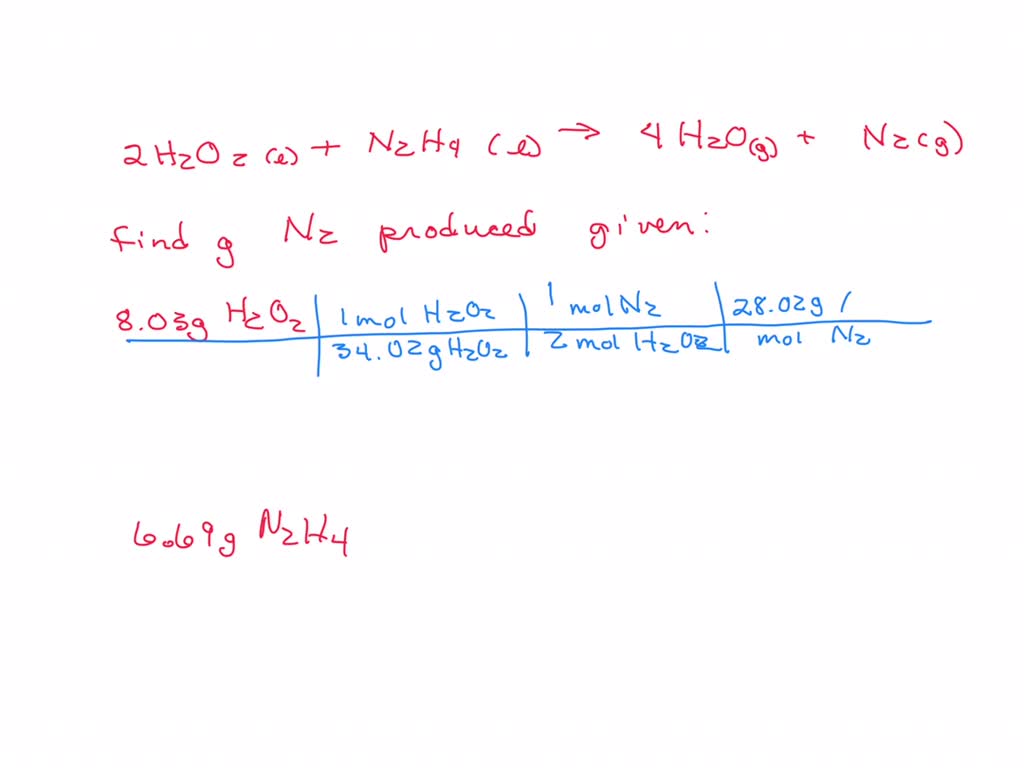 2H₂O₂(l) + N₂H₄(l) → 4H₂O(g) + N₂(g)
find g N₂ produced given:
8.03g H₂O₂ | 1 mol H₂O₂ | 1 mol N₂ | 28.02g /
34.02g H₂O₂ | 2 mol H₂O₂ | mol N₂
6.69g N₂H₄